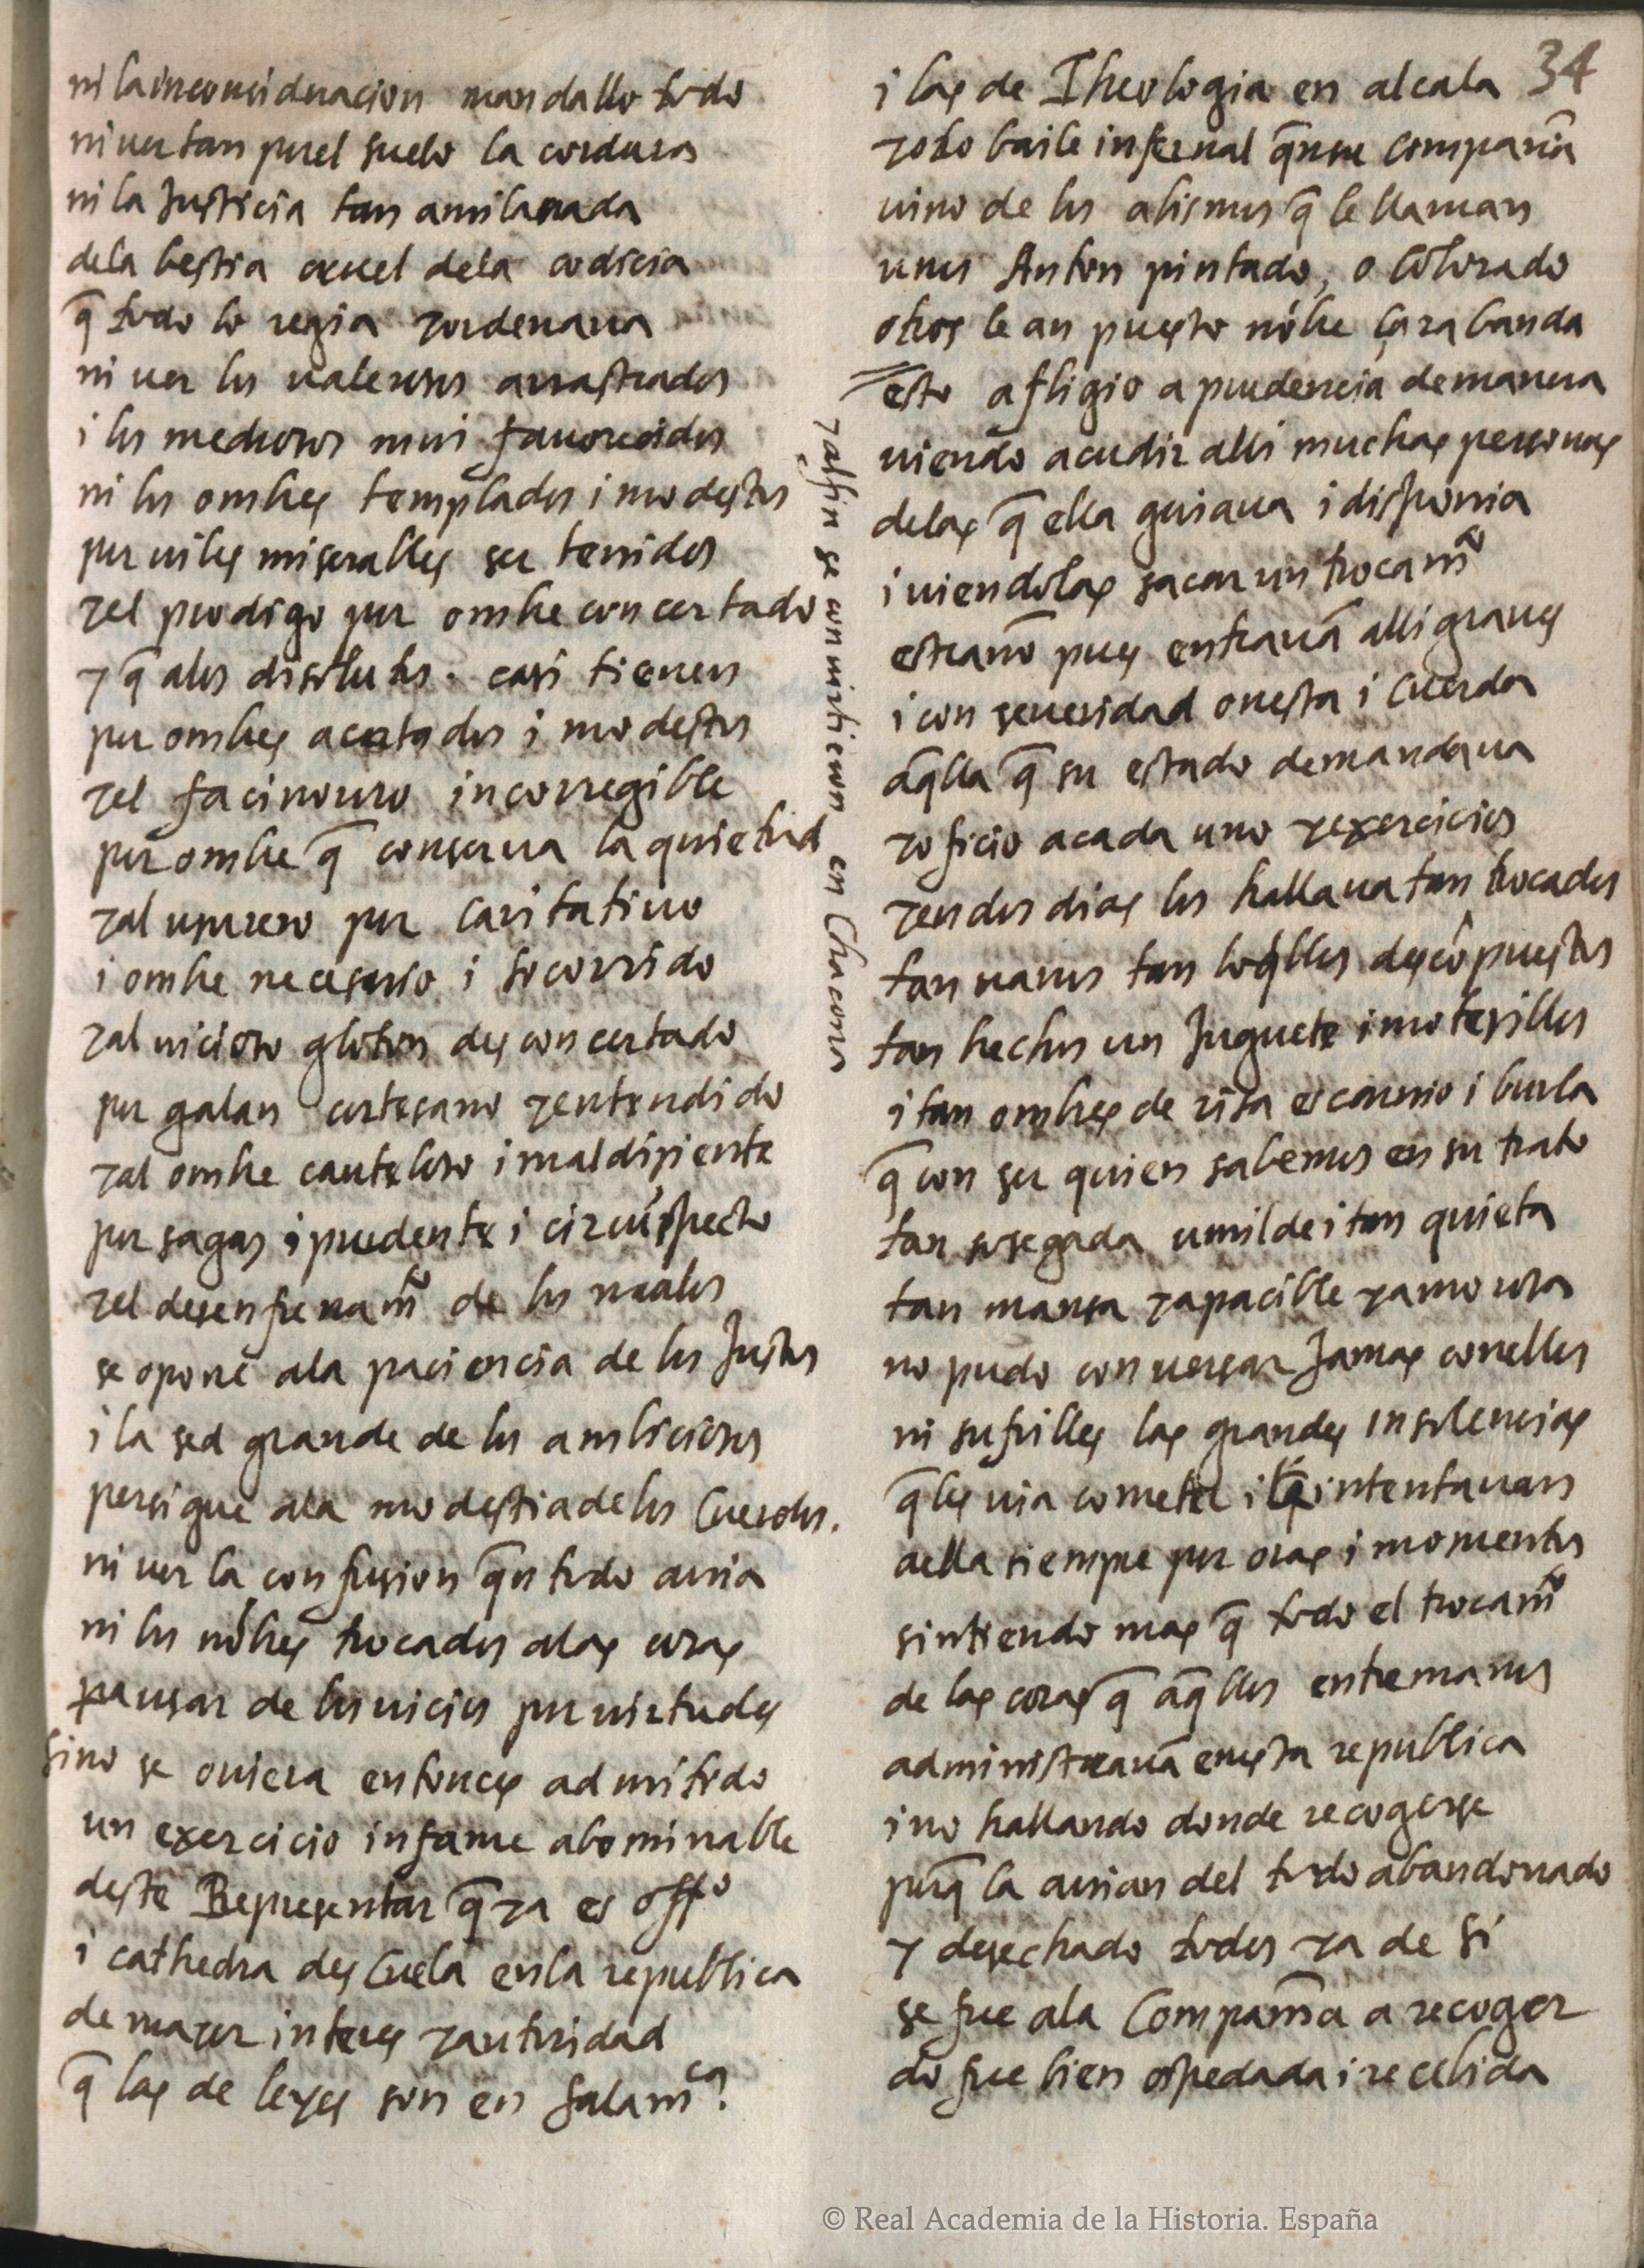 ni la inconsideracion mandallo todo
ni ver tan por el suelo la cordura
ni la Justicia tan amilanada
de la bestia cruel de la codicia
q̃ todo lo regia y ordenaua
ni uer los ualerosos arrastrados
i los medrosos mui fauorecidos
ni los ombres templados i modestos
por uiles miserables ser tenidos
y el prodigo por ombre concertado
y q̃ a los disolutos. casi tienen
por ombres acertados i modestos
y el facinoroso incorregible
por ombre q̃ conserua la quietud
y al usurero por caritatiuo
i ombre necesario i socorrido
y al uicioso gloton desconcertado
por galan cortesano y entendido
y al ombre cauteloso i maldiziente
por sagas i prudente i circũspecto
y el desenfrenamo de los malos
se opone a la paciencia de los Justos
i la sed grande de los ambiciosos
persigue a la modestia de los Cuerdos.
ni uer la confusion q̃n todo auia
ni los nõbres trocados a las cosas
pa usar de los uicios por uirtudes
sino se ouiera entonces admitido
un exercicio infame abominable
deste Representar q̃ ya es offo
i cathedra desCuela en la republica
de mayor interes y autoridad
q̃ las de leyes son en Salamca?
y al fin se conuirtieron en Chacona
34
i las de Theologia en alcala
y otro baile infernal q̃n su compañia
uino de los abismos q̃ le llaman
unos Anton pintado, o Colorado
otros le an puesto nõbre çarabanda
esto afligio a prudencia de manera
uiendo acudir alli muchas personas
de las q̃ ella guiaua i disponia
i uiendolas sacar un trocamo
estraño pues entrauã alli graues
i con seueridad onesta i Cuerda
aq̃lla q̃ su estado demandaua
y oficio a cada uno y exercicios
y en dos dias los hallaua tan trocados
tan uanos tan loq̃llos descõpuestos
tan hechos un Juguete i motexillos
i tan ombres de risa escarnio i burla
q̃ con ser quien sabemos en su trato
tan sosegada umilde i tan quieta
tan mansa y apacible y amorosa
no pudo conuersar Jamas con ellos
ni sufrilles las grandes insolencias
q̃ les uia cometer i q̃ intentauan
a ella siempre por oras i momentos
sintiendo mas q̃ todo el trocamo
de las cosas q̃ aq̃llos entre manos
administrauã en esta republica
i no hallando donde recogerse
porq̃ la auian del todo abandonado
y desechado todos ya de si
se fue a la Compañia a recoger
do fue bien ospedada i recebida
© Real Academia de la Historia. España